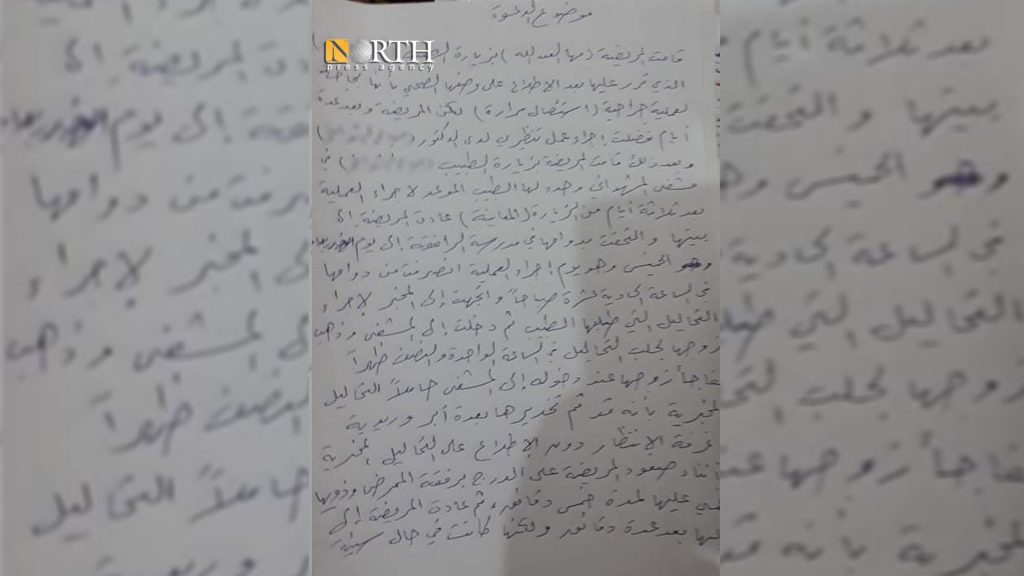 موضوع الدعوة
NORTH
press agency
قامت المريضة (مها العبدالله) بزيارة
الذي قرر عليها بعد الاطلاع على وضعها الصحي بأنها بحاجة
لعملية جراحية (استئصال مرارة) لكن المريضة وبعد عدة
أيام فضلت إجراء عمل تنظيري لدى الدكتور
وبعد ذلك قامت المريضة بزيارة الطبيب في
مشفى المشهداني وحدد لها الطبيب الموعد لإجراء العملية
بعد ثلاثة أيام من الزيارة (المعاينة) عادة المريضة إلى
بيتها والتحقت بدوامها في مدرسة الرافقة إلى يوم
وهو الخميس وهو يوم إجراء العملية انصرفت من دوامها
في الساعة الحادية عشرة صباحاً واتجهت إلى المخبر لإجراء
التحاليل التي طلبها الطبيب ثم دخلت إلى المشفى وذهب
زوجها لجلب التحاليل في الساعة الواحدة والنصف ظهراً
تفاجأ زوجها عند دخوله إلى المشفى حاملاً التحاليل
المخبرية بأنه قد تم تخديرها بعدة أبر وريدية
غرفة الانتظار دون الاطلاع على التحاليل المخبرية
أثناء صعود المريضة على الدرج برفقة الممرض وذويها
عليها لمدة خمس دقائق ثم عادة المريضة إلى
بعد عدة دقائق ولكنها كانت في حال سيئة